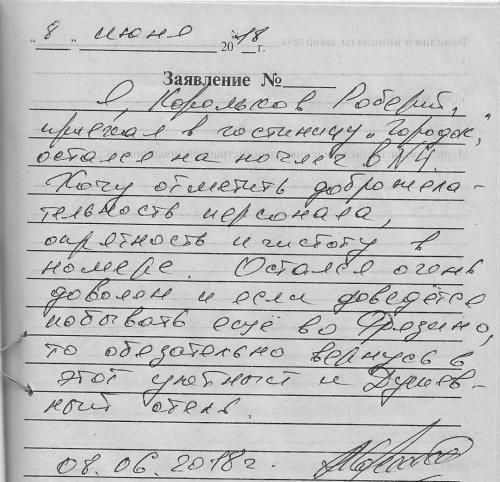 „8" июня 2018 г.
Заявление №
Я, Корольков Роберт,
приехал в гостиницу „Городок",
остался на ночлег в №4.
Хочу отметить доброжела-
тельность персонала,
опрятность и чистоту в
номере. Остался очень
доволен и если доведётся
побывать ещё во Фрязино,
то обязательно вернусь в
этот уютный и Душев-
ный отель.
08.06.2018г.